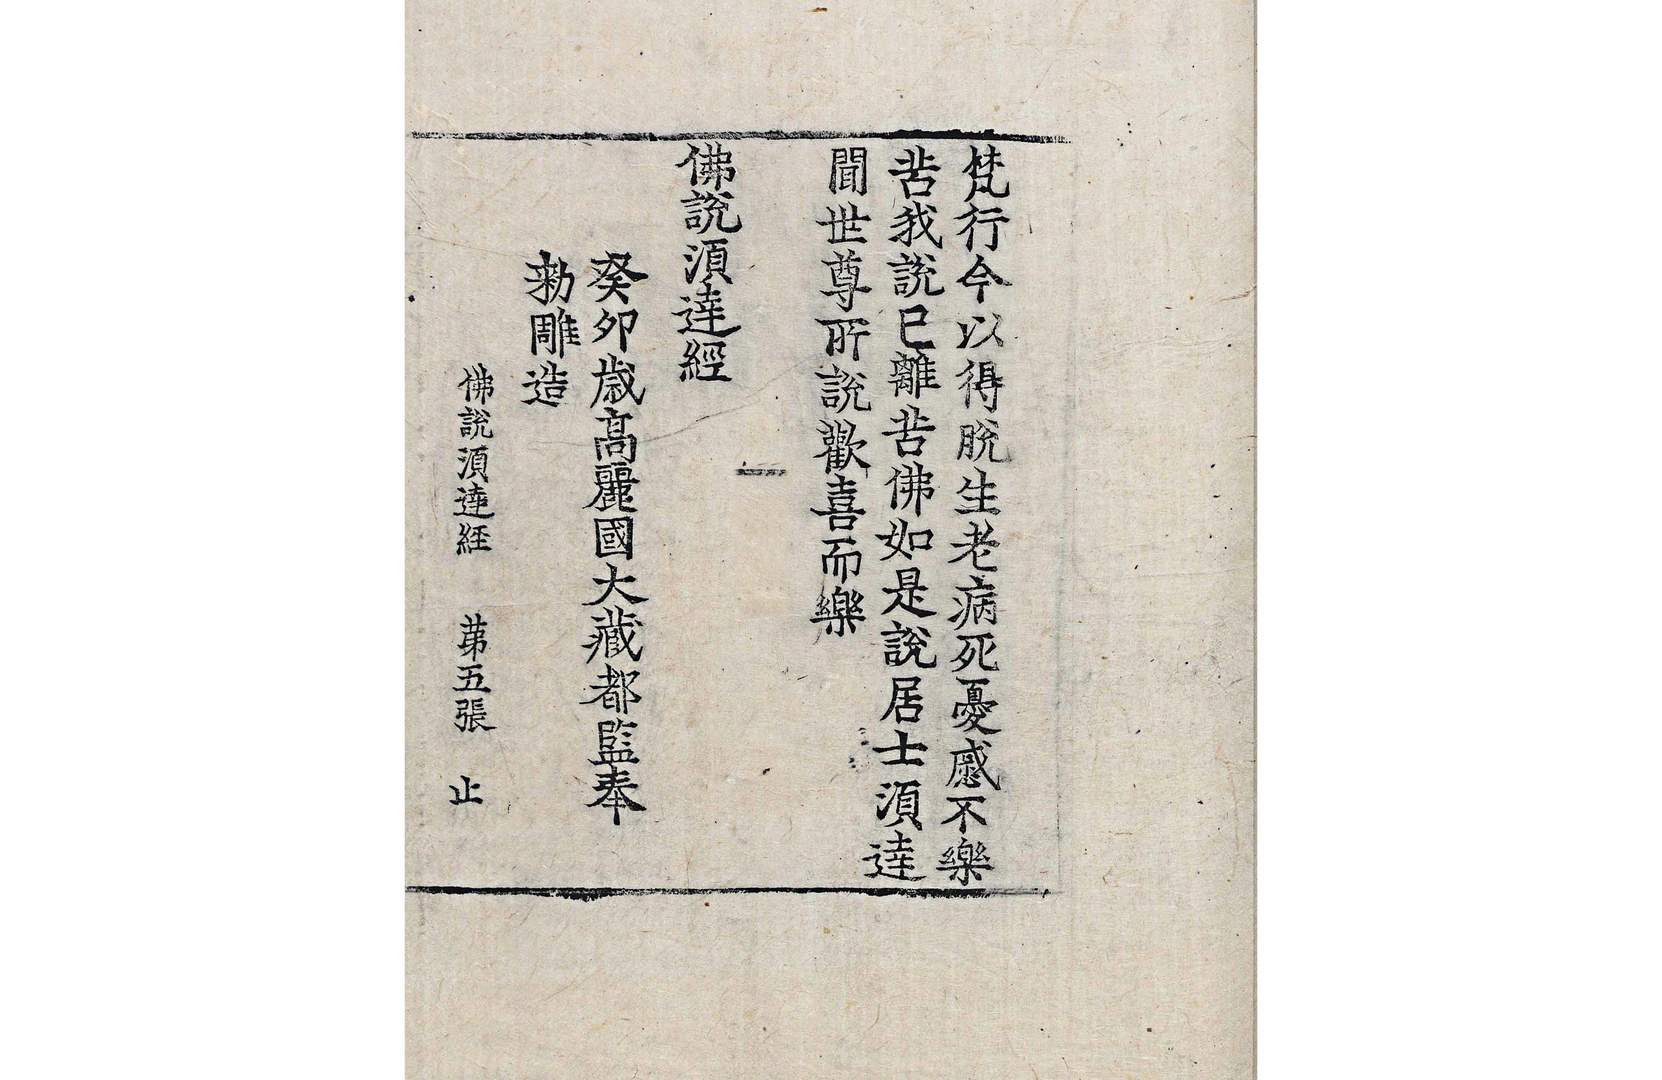 梵行今以得脫生老病死憂慼不樂
苦我說已離苦佛如是說居士湏達
聞世尊所說歡喜而樂
佛說湏達經
癸卯歲高麗國大藏都監奉
勑雕造
佛說湏達経 苐五張 止